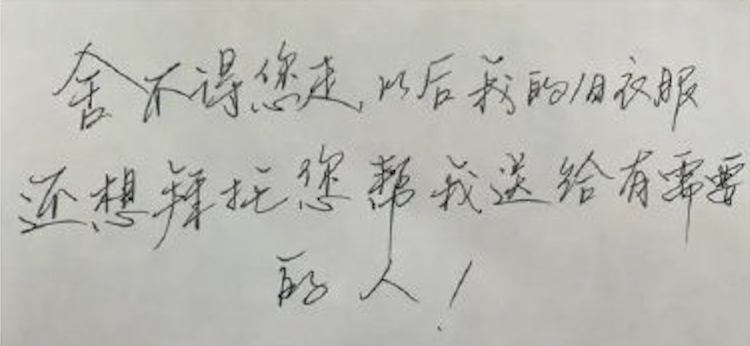 舍不得您走,以后我的旧衣服
还想拜托您帮我送给有需要
的人!